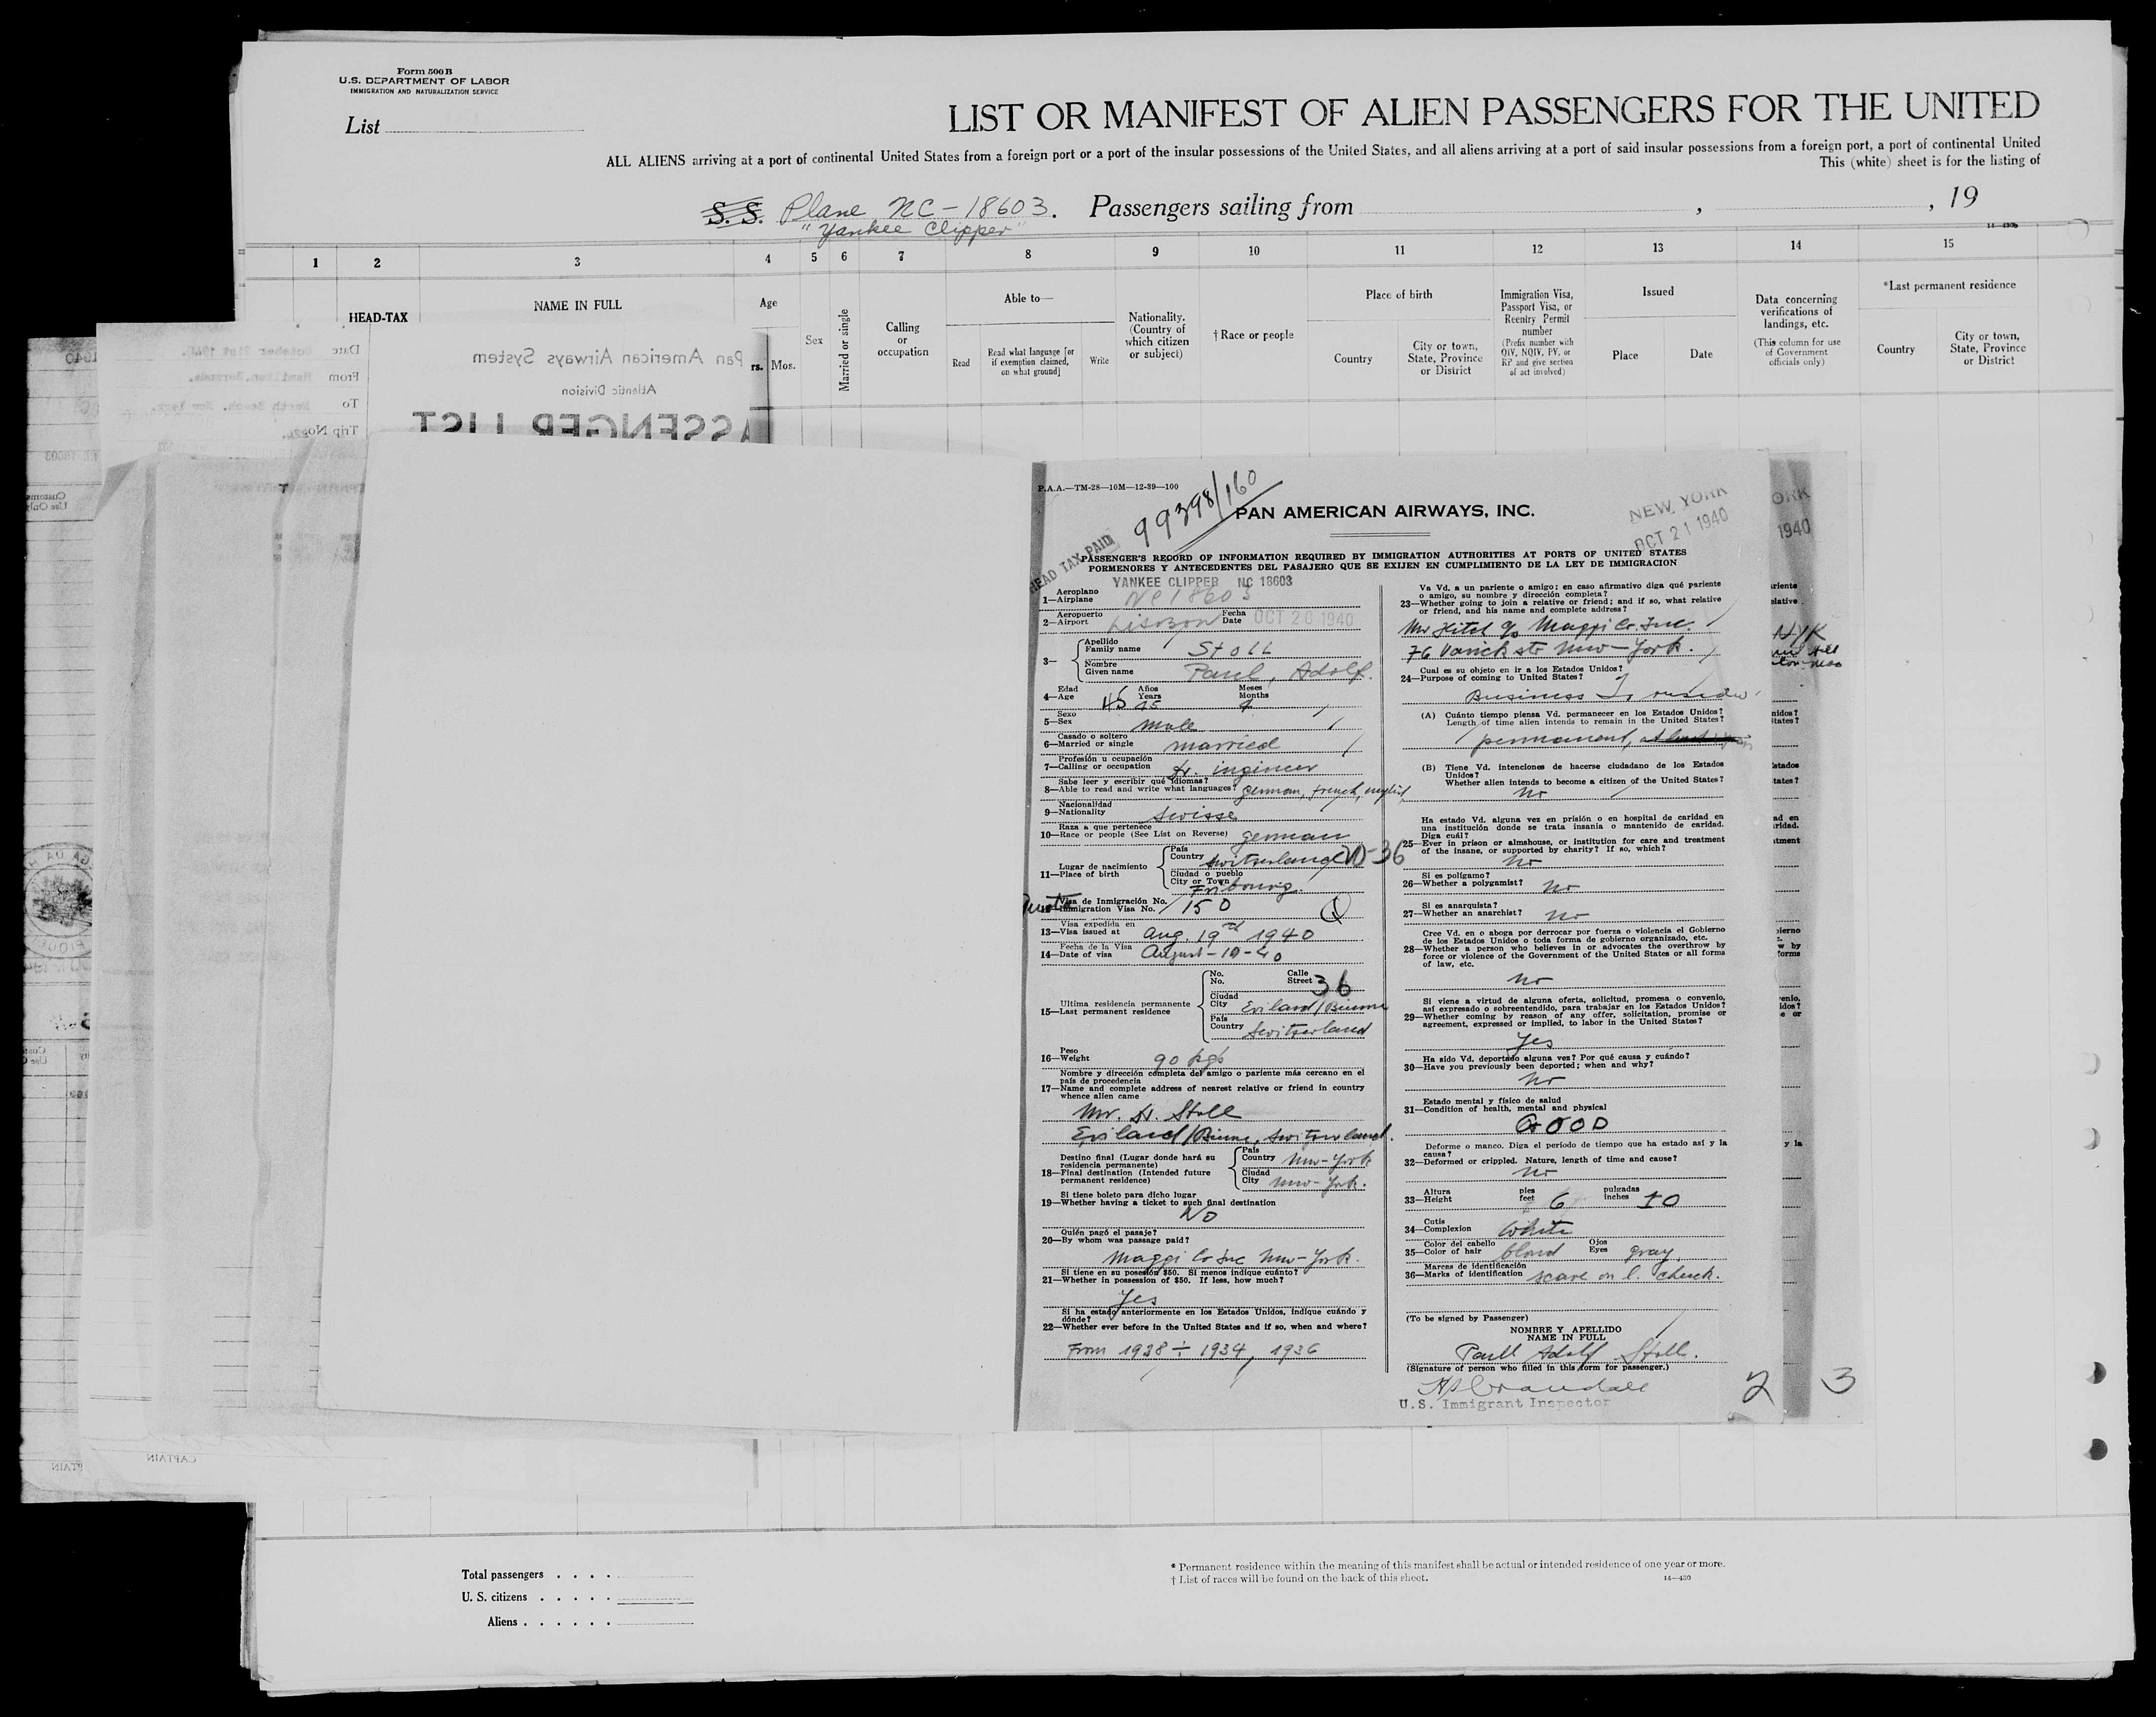 Form 500 B
U.S. DEPARTMENT OF LABOR
IMMIGRATION AND NATURALIZATION SERVICE
List
LIST OR MANIFEST OF ALIEN PASSENGERS FOR THE UNITED
ALL ALIENS arriving at a port of continental United States from a foreign port or a port of the insular possessions of the United States, and all aliens arriving at a port of said insular possessions from a foreign port, a port of continental United
This (white) sheet is for the listing of
S. S. Plane NC-18603. Passengers sailing from , , 19
"Yankee Clipper"
1 2 3 4 5 6 7 8 9 10 11 12 13 14 15
HEAD-TAX
NAME IN FULL
Age
rs. Mos.
Sex
Married or single
Calling or occupation
Able to—
Read
Read what language [or if exemption claimed, on what ground]
Write
Nationality. (Country of which citizen or subject)
† Race or people
Place of birth
Country
City or town, State, Province or District
Immigration Visa, Passport Visa, or Reentry Permit number
(Prefix number with QIV, NQIV, PV, or RP and give section of act involved)
Issued
Place
Date
Data concerning verifications of landings, etc.
(This column for use of Government officials only)
*Last permanent residence
Country
City or town, State, Province or District
Pan American Airways System
Atlantic Division
ASSENGER LIST
Date October 21st 1940.
From Hamilton, Bermuda.
To North Beach, New York.
Trip No.
Customs Use Only
CAPTAIN
P.A.A.—TM-28—10M—12-39—100
99398/160
HEAD TAX PAID
PAN AMERICAN AIRWAYS, INC.
NEW YORK
OCT 21 1940
PASSENGER'S RECORD OF INFORMATION REQUIRED BY IMMIGRATION AUTHORITIES AT PORTS OF UNITED STATES
PORMENORES Y ANTECEDENTES DEL PASAJERO QUE SE EXIJEN EN CUMPLIMIENTO DE LA LEY DE IMMIGRACION
YANKEE CLIPPER NC 18603
Aeroplano
1—Airplane NC 18603
Aeropuerto Fecha
2—Airport Lisbon Date OCT 20 1940
Apellido
Family name Stoll
3—
Nombre
Given name Paul, Adolf.
Edad Años Meses
4—Age 45 45 Years Months 4
Sexo
5—Sex male
Casado o soltero
6—Married or single married
Profesión u ocupación
7—Calling or occupation Dr. ingineer
Sabe leer y escribir qué idiomas?
8—Able to read and write what languages? german, french, english
Nacionalidad
9—Nationality Swisse
Raza a que pertenece
10—Race or people (See List on Reverse) german
País
Country Switzerland
Lugar de nacimiento
11—Place of birth
Ciudad o pueblo
City or Town Fribourg.
Visa de Inmigración No.
Quota Immigration Visa No. 150
Visa expedida en
13—Visa issued at Aug. 19 1940
Fecha de la Visa
14—Date of visa August-19-40
No. Calle
No. Street 36
Ciudad
City Evilard/Bienne
Ultima residencia permanente
15—Last permanent residence
País
Country Switzerland
Peso
16—Weight 90 kgs
Nombre y dirección completa del amigo o pariente más cercano en el país de procedencia
17—Name and complete address of nearest relative or friend in country whence alien came
Mr. A. Stoll
Evilard/Bienne, Switzerland.
Destino final (Lugar donde hará su residencia permanente)
País
Country New-York
18—Final destination (Intended future permanent residence)
Ciudad
City New-York.
Si tiene boleto para dicho lugar
19—Whether having a ticket to such final destination
No
Quién pagó el pasaje?
20—By whom was passage paid?
Maggi Co Inc New-York.
Si tiene en su posesión $50. Si menos indique cuánto?
21—Whether in possession of $50. If less, how much?
Yes
Si ha estado anteriormente en los Estados Unidos, indique cuándo y dónde?
22—Whether ever before in the United States and if so, when and where?
From 1938 ÷ 1934, 1936
Va Vd. a un pariente o amigo; en caso afirmativo diga qué pariente o amigo, su nombre y dirección completa?
23—Whether going to join a relative or friend; and if so, what relative or friend, and his name and complete address?
Mr Hitel c/o Maggi Co. Inc.
76 Varick str New-York.
Cual es su objeto en ir a los Estados Unidos?
24—Purpose of coming to United States?
Business To reside
(A) Cuánto tiempo piensa Vd. permanecer en los Estados Unidos?
Length of time alien intends to remain in the United States?
permanent,
(B) Tiene Vd. intenciones de hacerse ciudadano de los Estados Unidos?
Whether alien intends to become a citizen of the United States?
No
Ha estado Vd. alguna vez en prisión o en hospital de caridad en una institución donde se trata insania o mantenido de caridad. Diga cuál?
25—Ever in prison or almshouse, or institution for care and treatment of the insane, or supported by charity? If so, which?
No
Si es polígamo?
26—Whether a polygamist? No
Si es anarquista?
27—Whether an anarchist? No
Cree Vd. en o aboga por derrocar por fuerza o violencia el Gobierno de los Estados Unidos o toda forma de gobierno organizado, etc.
28—Whether a person who believes in or advocates the overthrow by force or violence of the Government of the United States or all forms of law, etc.
No
Si viene a virtud de alguna oferta, solicitud, promesa o convenio, así expresado o sobreentendido, para trabajar en los Estados Unidos?
29—Whether coming by reason of any offer, solicitation, promise or agreement, expressed or implied, to labor in the United States?
Yes
Ha sido Vd. deportado alguna vez? Por qué causa y cuándo?
30—Have you previously been deported; when and why?
No
Estado mental y físico de salud
31—Condition of health, mental and physical
GOOD
Deforme o manco. Diga el período de tiempo que ha estado así y la causa?
32—Deformed or crippled. Nature, length of time and cause?
No
Altura pies pulgadas
33—Height feet 6 inches 10
Cutis
34—Complexion White
Color del cabello Ojos
35—Color of hair blond Eyes gray
Marcas de identificación
36—Marks of identification scare on l. cheek.
(To be signed by Passenger)
NOMBRE Y APELLIDO
NAME IN FULL
Paul Adolf Stoll.
(Signature of person who filled in this form for passenger.)
U.S. Immigrant Inspector
2 3
Total passengers
U. S. citizens
Aliens
* Permanent residence within the meaning of this manifest shall be actual or intended residence of one year or more.
† List of races will be found on the back of this sheet.
14—430